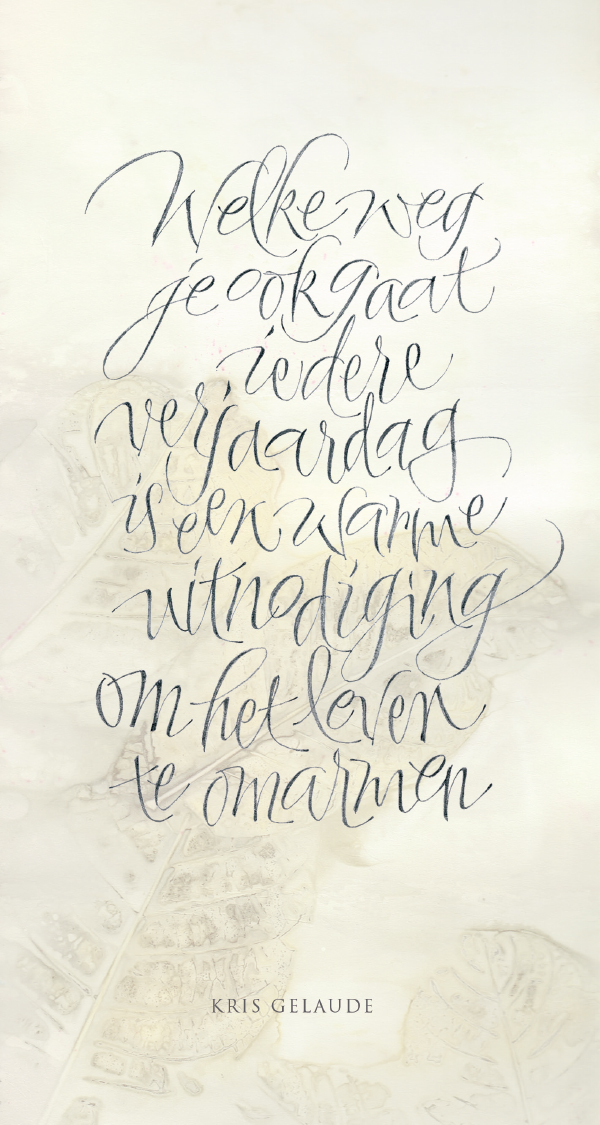 Welke weg
je ook gaat
iedere
verjaardag
is een warme
uitnodiging
om het leven
te omarmen
KRIS GELAUDE